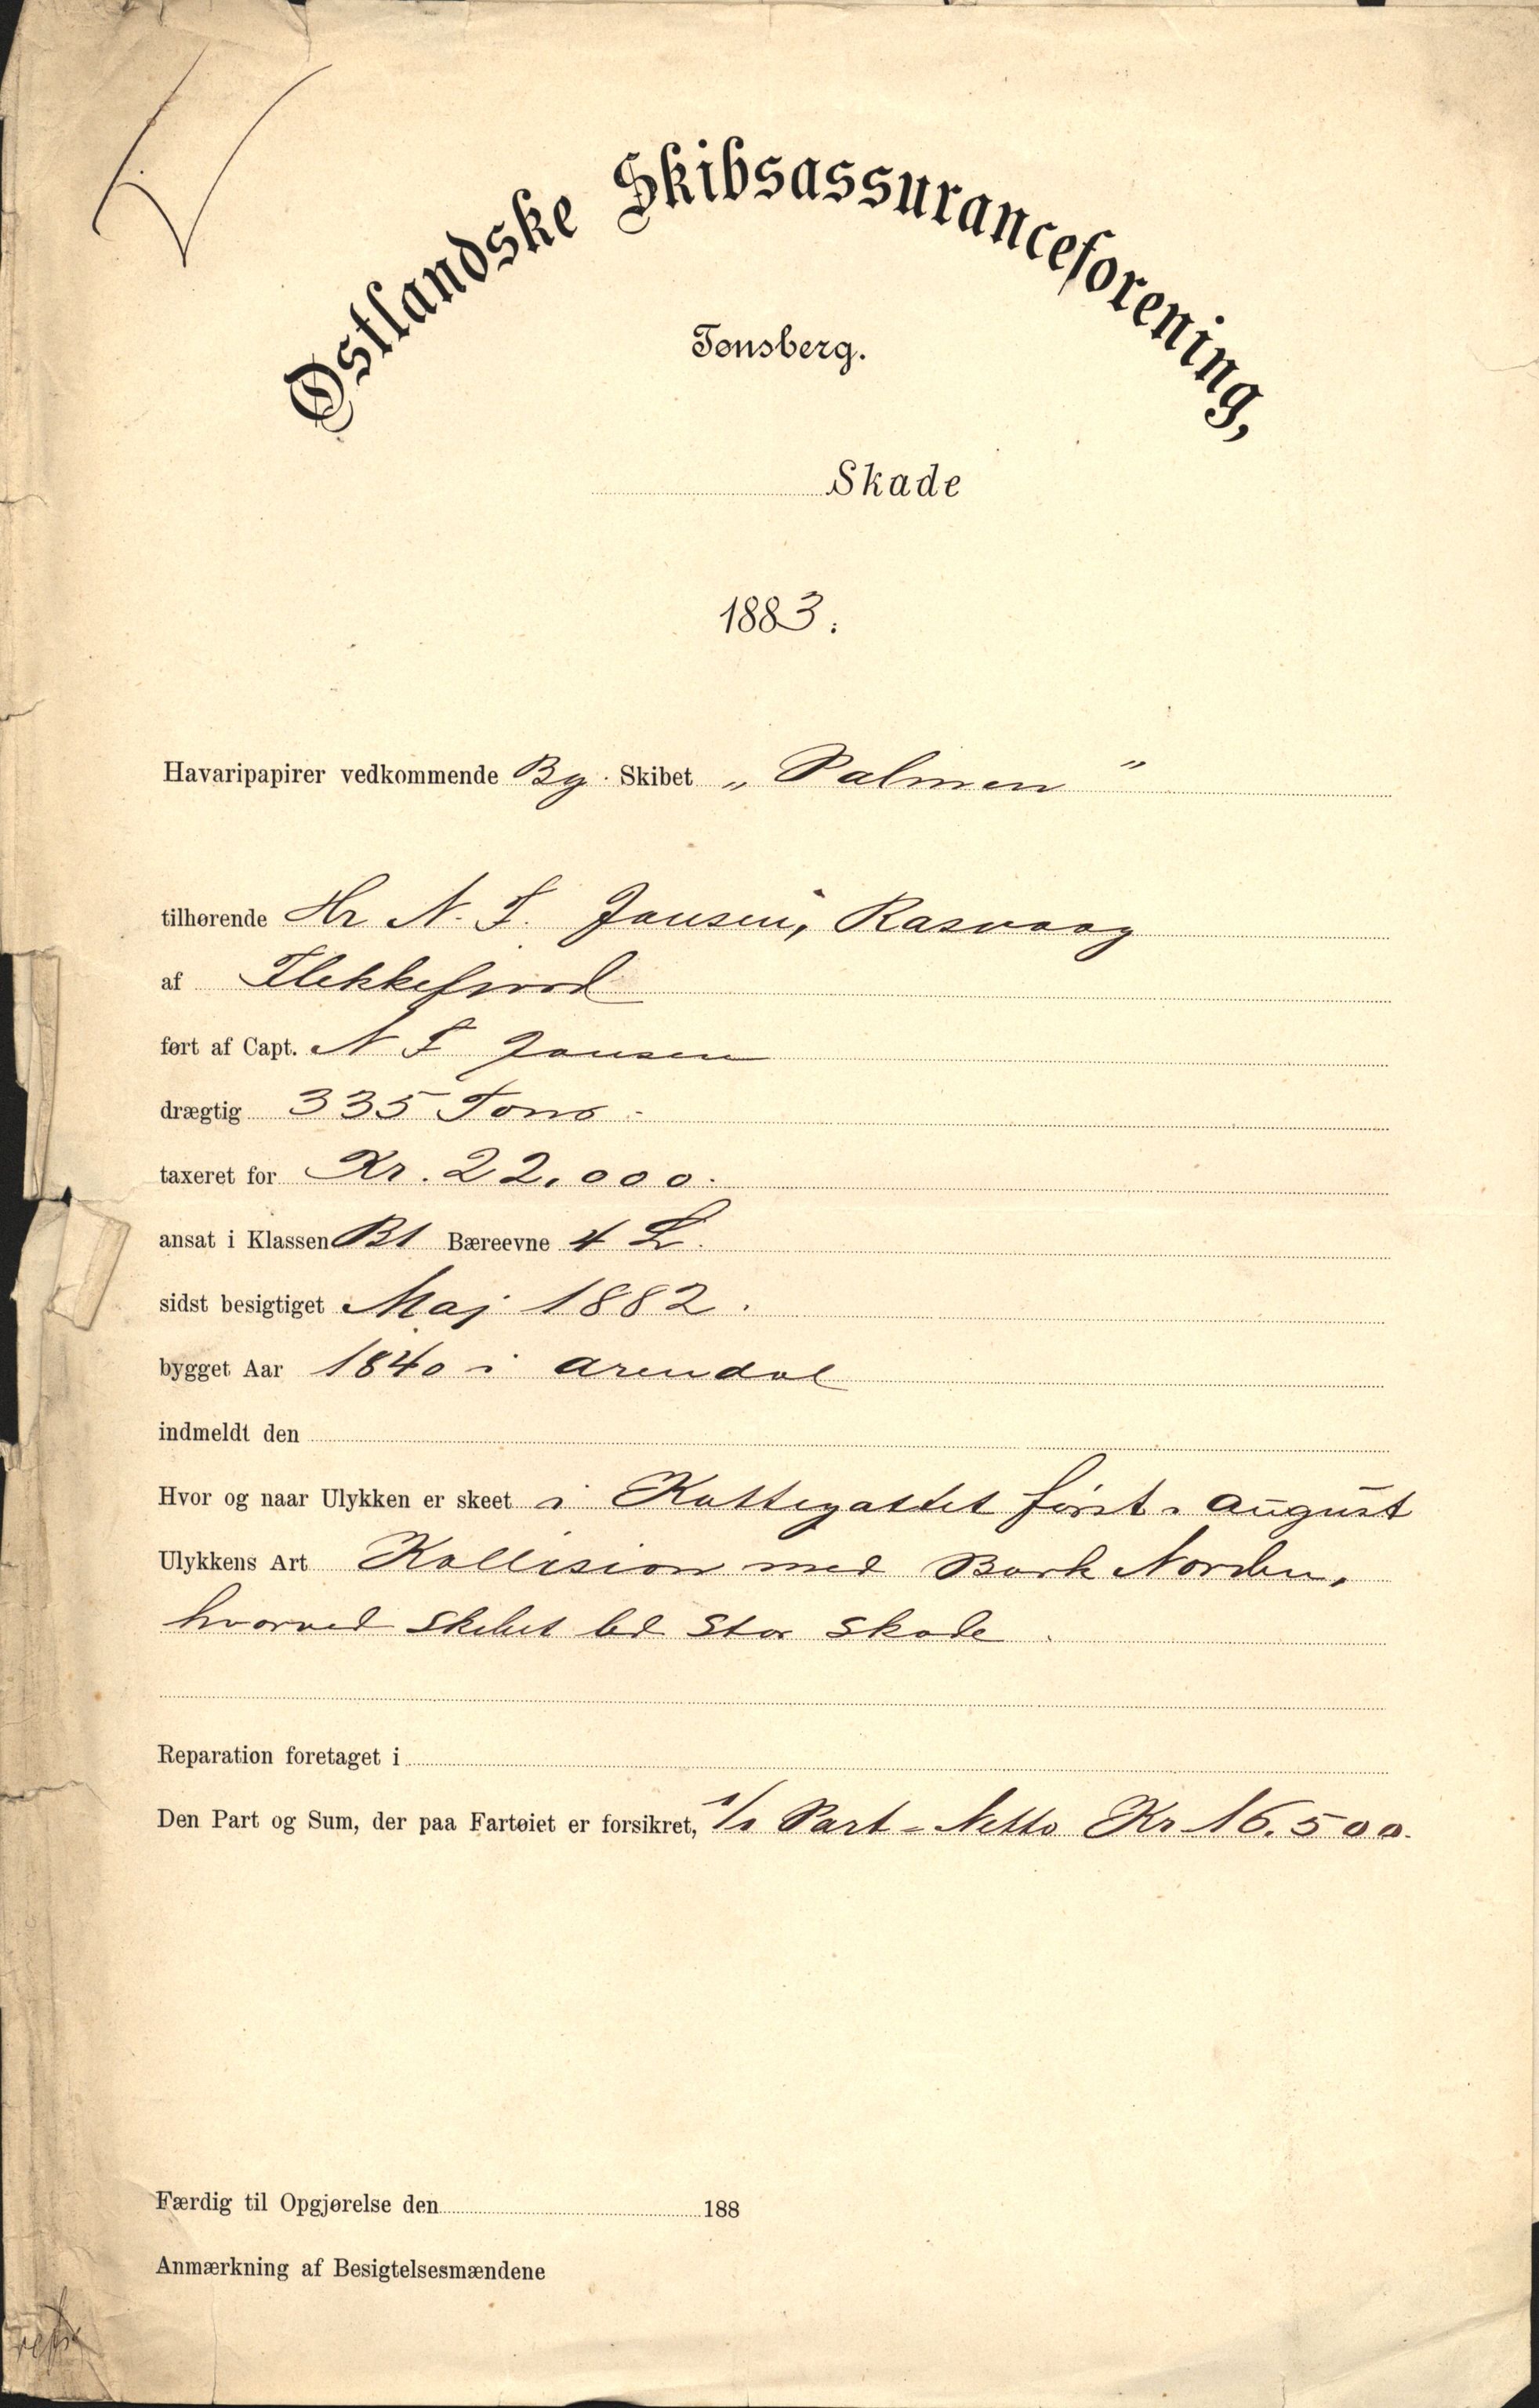 Østlandske Skibsassuranceforening,
Tønsberg.
Skade
1883.
Havaripapirer vedkommende Bg. Skibet „Palmen"
tilhørende Hr N. F. Jansen, Rasvaag
af Flekkefjord
ført af Capt. N F Jansen
drægtig 335 Tons.
taxeret for Kr. 22,000.
ansat i Klassen B1 Bæreevne 4 L.
sidst besigtiget Maj 1882.
bygget Aar 1840 i Arendal
indmeldt den
Hvor og naar Ulykken er skeet i Kattegattet først i august
Ulykkens Art Kollision med Bark Norden,
hvorved Skibet led stor skade.
Reparation foretaget i
Den Part og Sum, der paa Fartøiet er forsikret, 1/1 Part - Netto Kr 16.500.
Færdig til Opgjørelse den 188
Anmærkning af Besigtelsesmændene